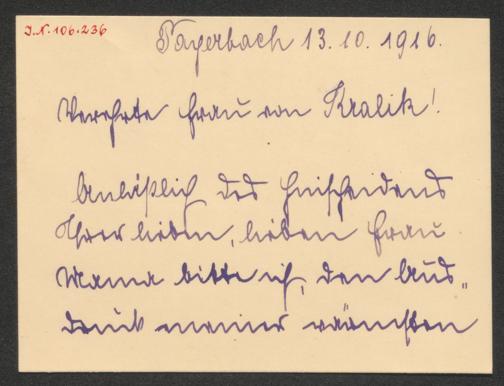 I.N. 106.236
Payerbach 13.10.1916.
Verehrte Frau von Kralik!
Anläßlich des Hinscheidens
Ihrer lieben, lieben Frau
Mama bitte ich, den Aus„
druck meiner wärmsten